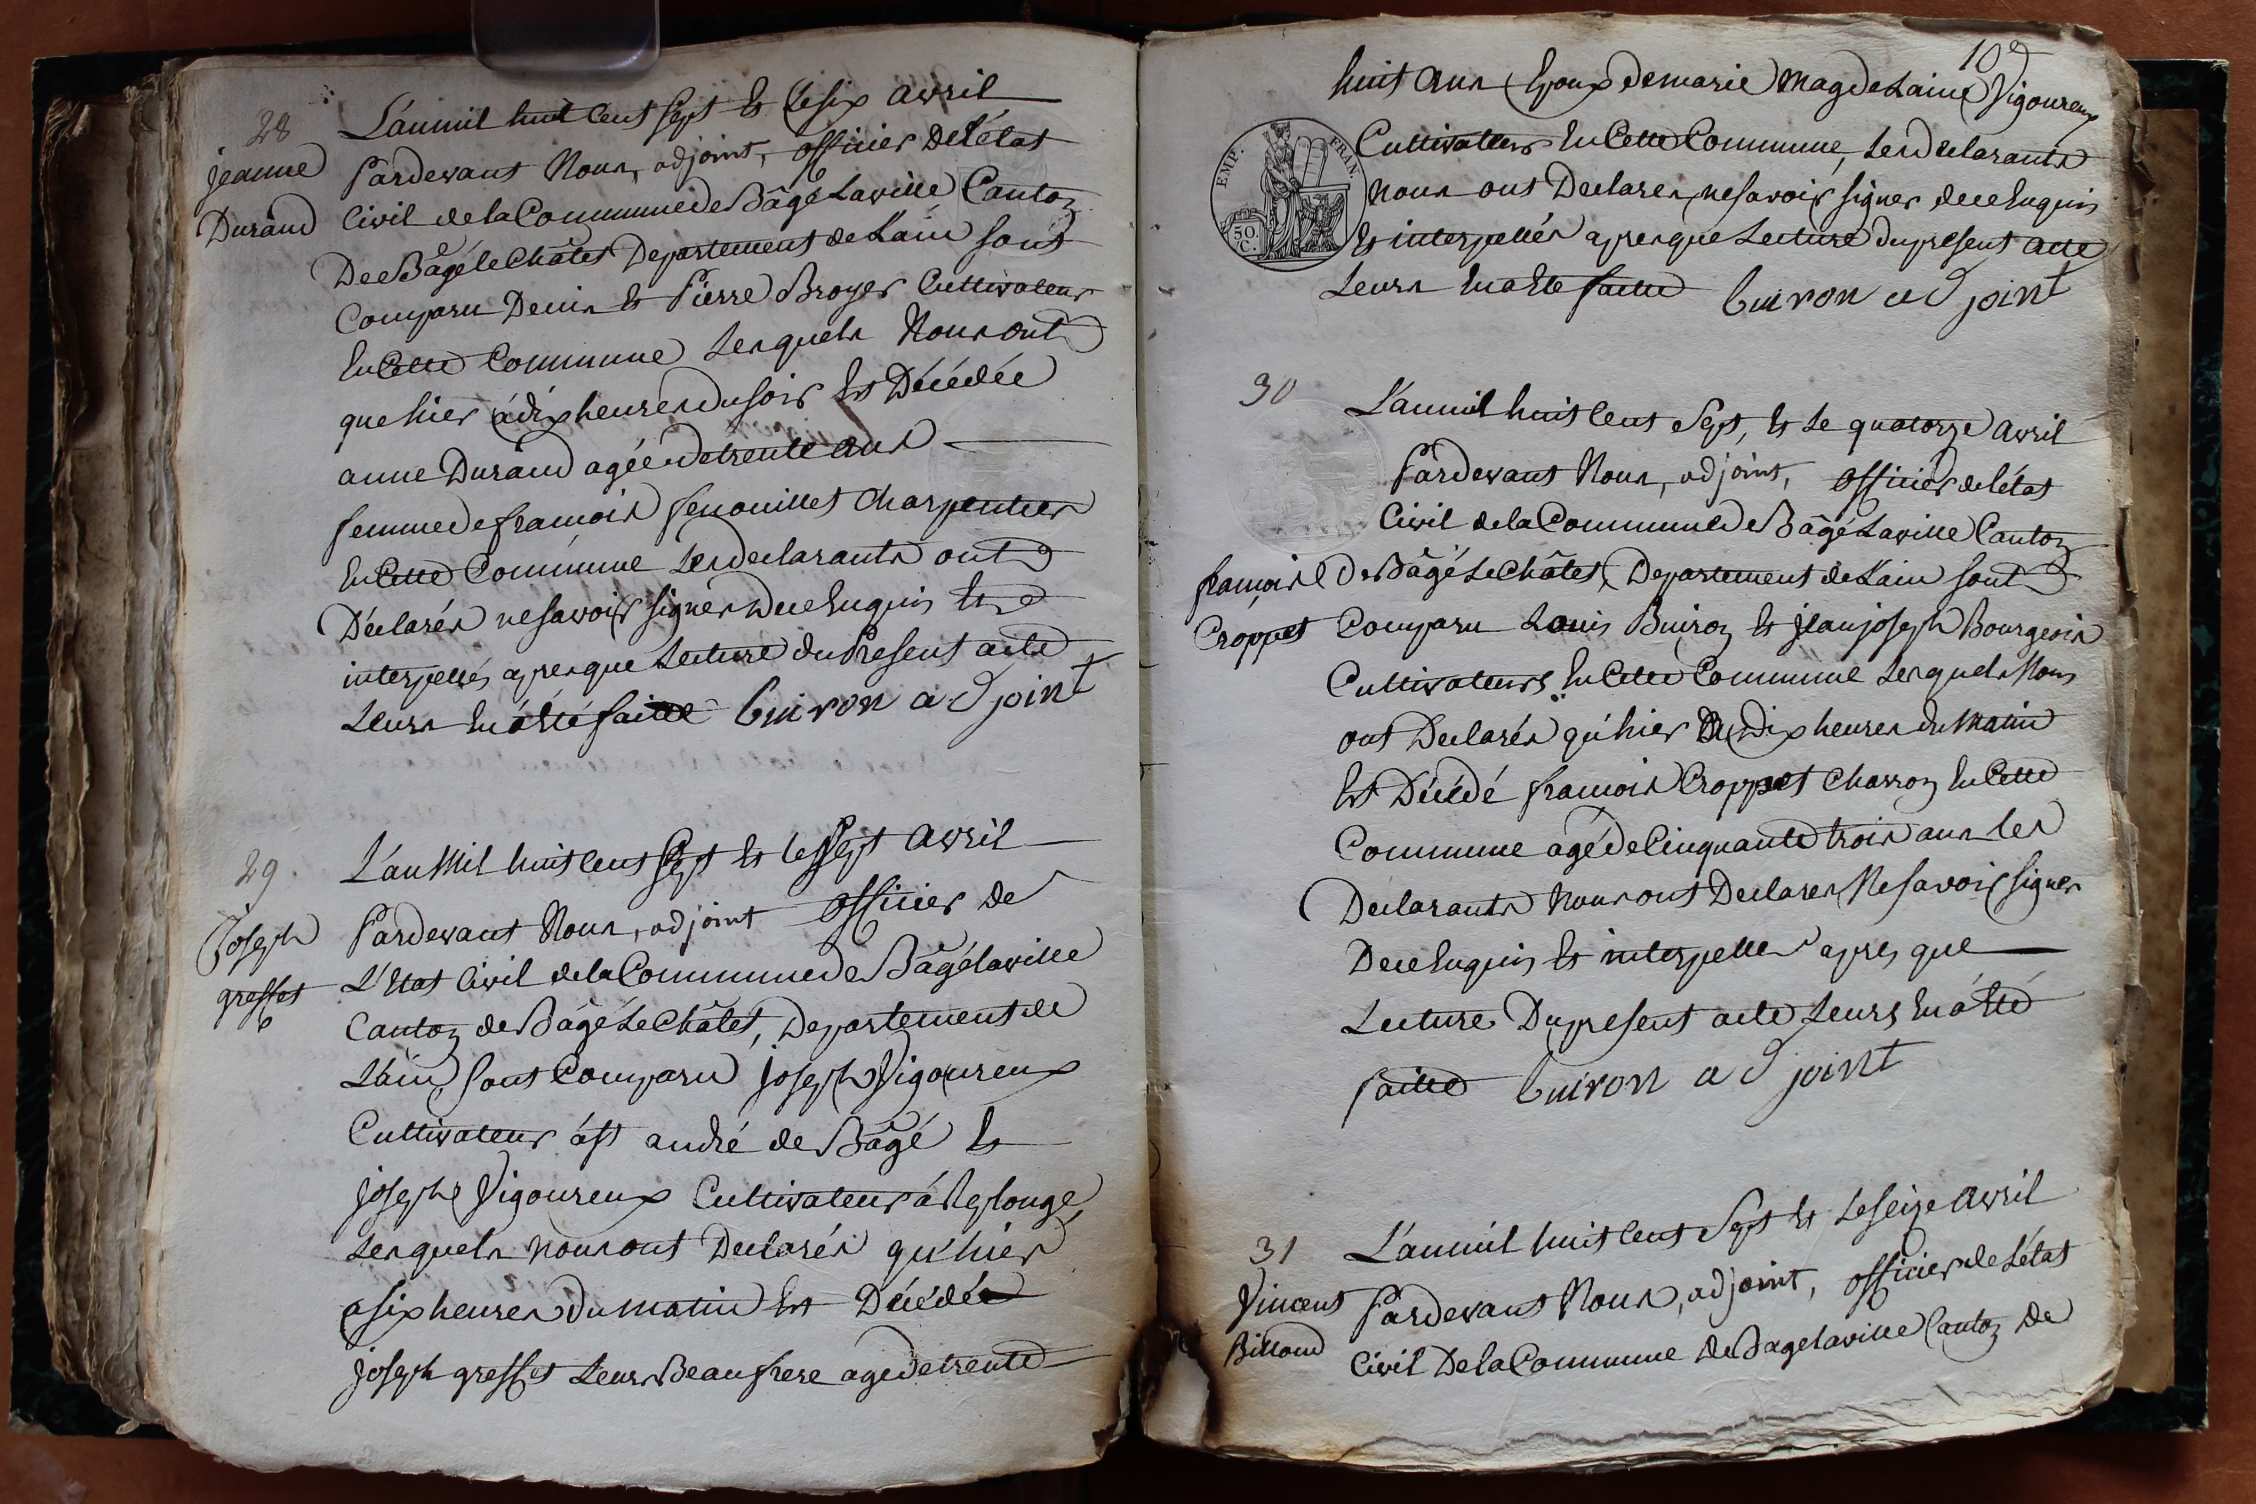 28
jeanne
Durand
L'an mil huit Cent Sept et Le six avril
Pardevant Nous, adjoint, officier De L'état
Civil de la Commune de Bâgé Laville Canton
De Bâgé le Châtel Departement de L'ain sont
Comparu Denis et Pierre Broyer Cultivateurs
En Cette Commune Lesquels Nous ont
que hier à dix heures du soir Est Décédée
anne Durand agée de trente ans
femme de françois fenouillet Charpentier
En Cette Commune Les declarants ont
Déclarés ne savoir signer De ce Enquis Et
interpellés apres que Lecture du Present acte
Leurs En a Eté faitte buiron adjoint
29
Joseph
greffet
L'an Mil huit Cent Sept Et le Sept avril
Pardevant Nous, adjoint officier de
L'Etat Civil de la Commune de Bâgé laville
Canton de Bâgé Le Châtel, Departement de
L'ain sont Comparu Joseph Vigoureux
Cultivateur à st andré de Bâgé Et
joseph Vigoureux Cultivateur à Replonge
Lesquels nous ont Declarés qu'hier
a six heures Du matin Est Décédé
joseph greffet Leurs Beau frere agé de trente
109
huit ans Epoux de marie Magdelaine Vigoureux
Cultivateur En Cette Commune, Les declarants
Nous ont Declarer ne savoir signer de ce Enquis
Et interpellés apres que Lecture du present acte
Leurs En a Ete faitte buiron adjoint
EMP. FRAN.
50.
C.
30
françois
Croppet
L'an mil huit Cent Sept, Et Le quatorze avril
Pardevant Nous, adjoint, officier de l'état
Civil de la Commune de Bâgé Laville Canton
De Bâgé Le Châtel, Departement de L'ain sont
Comparu Louis Buiron Et jean joseph Bourgeois
Cultivateurs En Cette Commune Lesquels Nous
ont Declarés qu'hier a dix heures du Matin
Est Décédé françois Croppet Charron En Cette
Commune agé de Cinquante trois ans Les
Declarants Nous ont Declarer Ne savoir signer
De ce Enquis Et interpeller apres que
Lecture Du present acte Leurs En a Eté
faitte buiron adjoint
31
Vincent
Billoud
L'an mil huit Cent Sept Et Le seize avril
Pardevant Nous, adjoint, officier de L'état
Civil De la Commune de Bagé laville Canton De